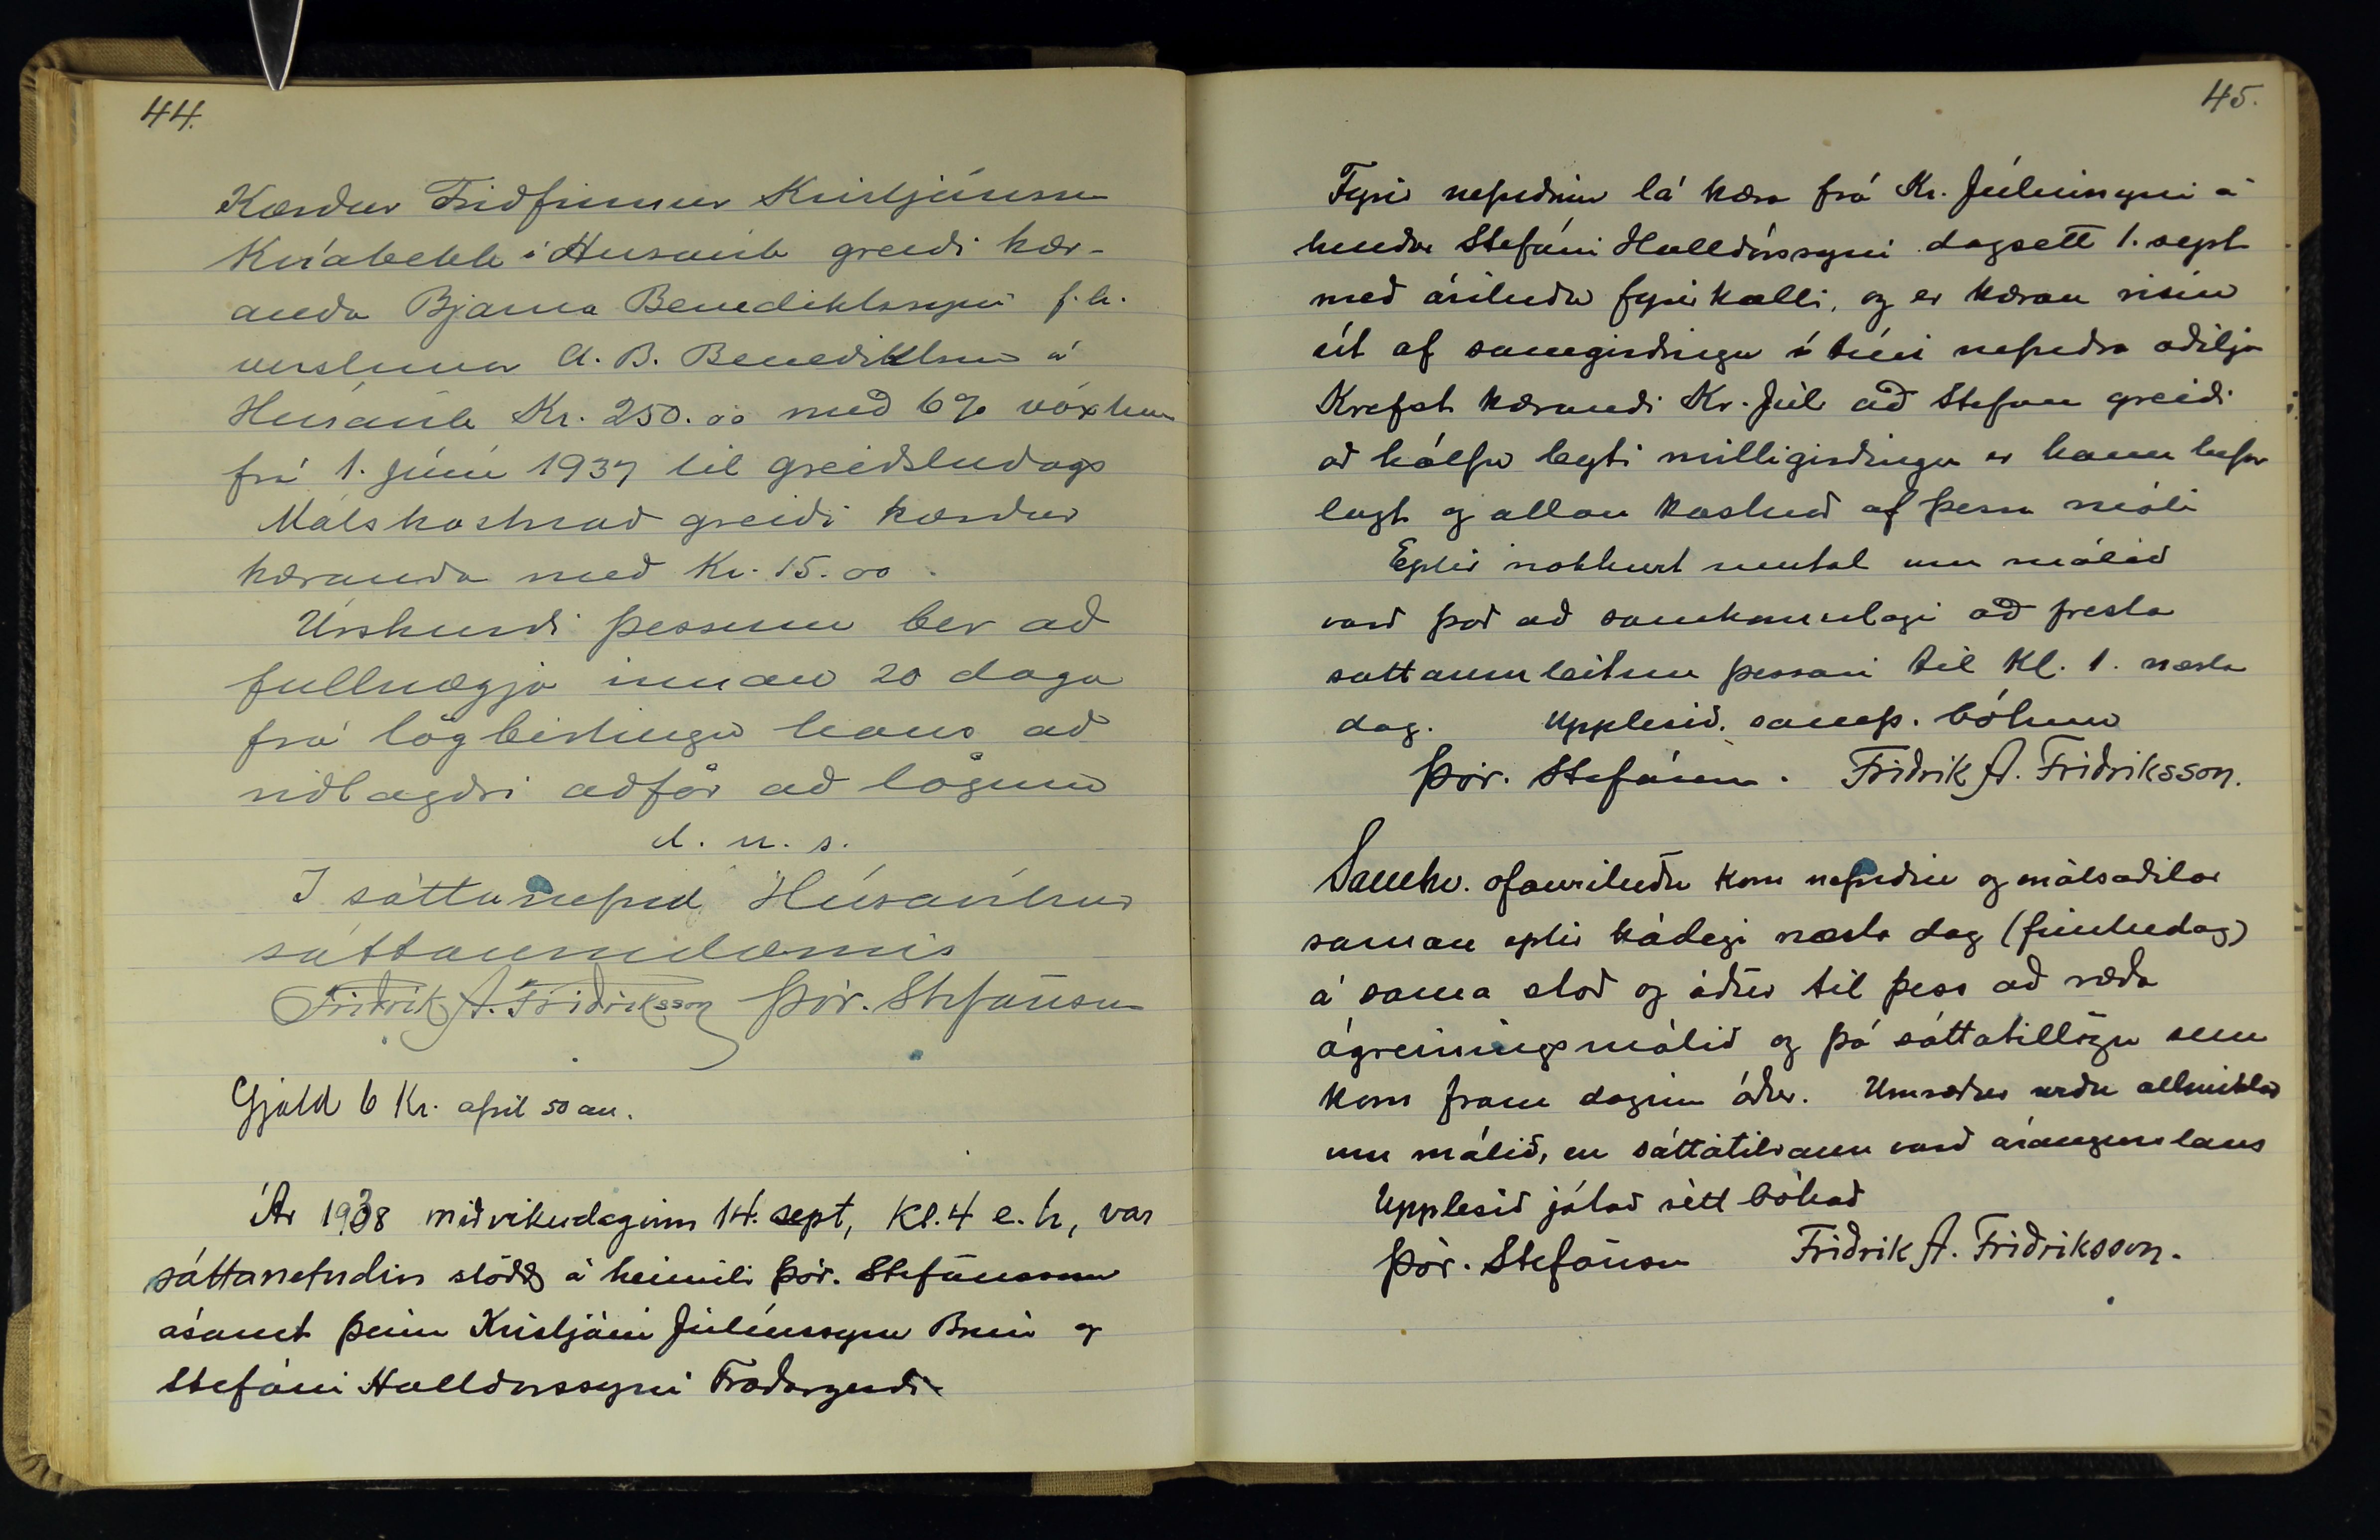 44.
Kærður Friðfinnur Kristjánsson
Kvíabekk í Húsavík greiði kær-
anda Bjarna Benediktssyni f.h.
verslunar A. B. Benediktsson á
Húsavík Kr. 250.00 með 6% vöxtum
frá 1. Júní 1937 til greiðsludags
Málskostnað greiði kærður
kæranda með Kr. 15.00.
Úrskurði þessum ber að
fullnægja innan 20 daga
frá lögbirtingu hans að
viðlagðri aðför að lögum
d. u. s.
I sáttanefnd Húsavíkur
sáttaumdæmis
Friðrik A. Friðriksson Þór. Stefánsson
Gjald 6 Kr. afril 50 au.
Ár 1938 miðvikudaginn 14. sept, Kl. 4 e. h, var
sáttanefndin stödd á heimili Þór. Stefánssonar
ásamt þeim Kristjáni Júlíussyni Brún og
Stefáni Halldórssyni Traðargerði
45.
Fyrir nefndinni lá kæra frá Kr. Júlíussyni á
hendur Stefáni Halldórssyni dagsett 1. sept
með árituðu fyrirkalli, og er kæran risin
út af samgirðingu á túni nefndra aðilja
Krefst kærandi Kr. Júl að Stefan greiði
að hálfu leyti milligirðingu er hann hefir
lagt og allan kostnað af þessu máli
Eptir nokkurt umtal um málið
varð það að samkomulagi að fresta
sáttaumleitun þessari til Kl. 1. næsta
dag. Upplesið. samþ. bókun
Þór. Stefánsson. Friðrik A. Friðriksson.
Samkv. ofanrituðu kom nefndin og málsaðilar
saman eptir hádegi næsta dag (fimtudag)
á sama stað og áður til þess að ræða
ágreiningsmálið og þá sáttatillögu sem
kom fram daginn áður. Umræður urðu allmiklar
um málið, en sáttatilraun varð árangurslaus
Upplesið játað rétt bókað
Þór. Stefánsson Friðrik A. Friðriksson.